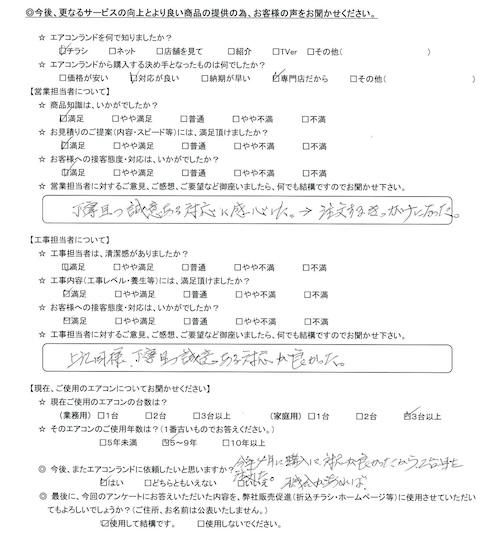 ◎今後、更なるサービスの向上とより良い商品の提供の為、お客様の声をお聞かせください。
☆ エアコンランドを何で知りましたか?
☑チラシ □ネット □店舗を見て □紹介 □TVer □その他( )
☆ エアコンランドから購入する決め手となったものは何でしたか?
□価格が安い ☑対応が良い □納期が早い ☑専門店だから □その他( )
【営業担当者について】
☆ 商品知識は、いかがでしたか?
☑満足 □やや満足 □普通 □やや不満 □不満
☆ お見積りのご提案(内容・スピード等)には、満足頂けましたか?
☑満足 □やや満足 □普通 □やや不満 □不満
☆ お客様への接客態度・対応は、いかがでしたか?
☑満足 □やや満足 □普通 □やや不満 □不満
☆ 営業担当者に対するご意見、ご感想、ご要望など御座いましたら、何でも結構ですのでお聞かせ下さい。
丁寧且つ誠意ある対応に感心した。→ 注文するきっかけになった。
【工事担当者について】
☆ 工事担当者は、清潔感がありましたか?
☑満足 □やや満足 □普通 □やや不満 □不満
☆ 工事内容(工事レベル・養生等)には、満足頂けましたか?
☑満足 □やや満足 □普通 □やや不満 □不満
☆ お客様への接客態度・対応は、いかがでしたか?
☑満足 □やや満足 □普通 □やや不満 □不満
☆ 工事担当者に対するご意見、ご感想、ご要望など御座いましたら、何でも結構ですのでお聞かせ下さい。
上記同様、丁寧且つ誠意ある対応が良かった。
【現在、ご使用のエアコンについてお聞かせください】
☆ 現在ご使用のエアコンの台数は?
(業務用) □1台 □2台 □3台以上 (家庭用) □1台 □2台 ☑3台以上
☆ そのエアコンのご使用年数は?(1番古いものでお答えください。)
□5年未満 ☑5~9年 □10年以上
◎ 今後、またエアコンランドに依頼したいと思いますか?
□はい □どちらともいえない □いいえ。 機会があれば
◎ 最後に、今回のアンケートにお答えいただいた内容を、弊社販売促進(折込チラシ・ホームページ等)に使用させていただい
てもよろしいでしょうか?(ご住所、お名前は公表いたしません。)
☑使用して結構です。 □使用しないでください。